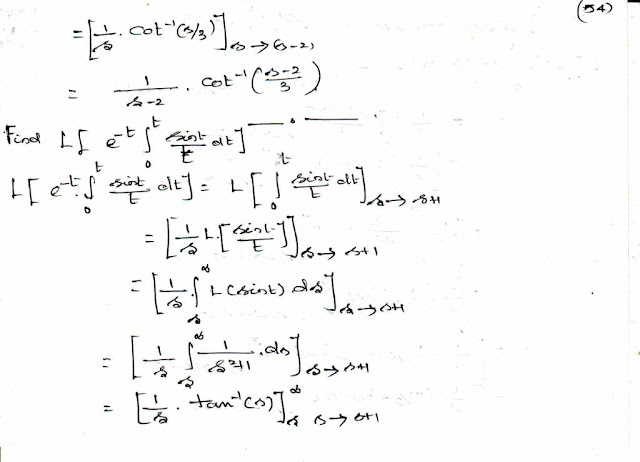 (54)
= [1/s . cot⁻¹(s/3)] s → (s-2)
= 1/s-2 . cot⁻¹(s-2/3)
Find L[ e^-t ∫₀^t sint/t dt]
L[ e^-t. ∫₀^t sint/t dt] = L[ ∫₀^t sint/t dt] s → s+1
= [1/s L[sint/t]] s → s+1
= [1/s . ∫ₛ^∞ L(sint) ds] s → s+1
= [1/s ∫ₛ^∞ 1/s²+1 . ds] s → s+1
= [1/s . tan⁻¹(s)]ₛ^∞ s → s+1